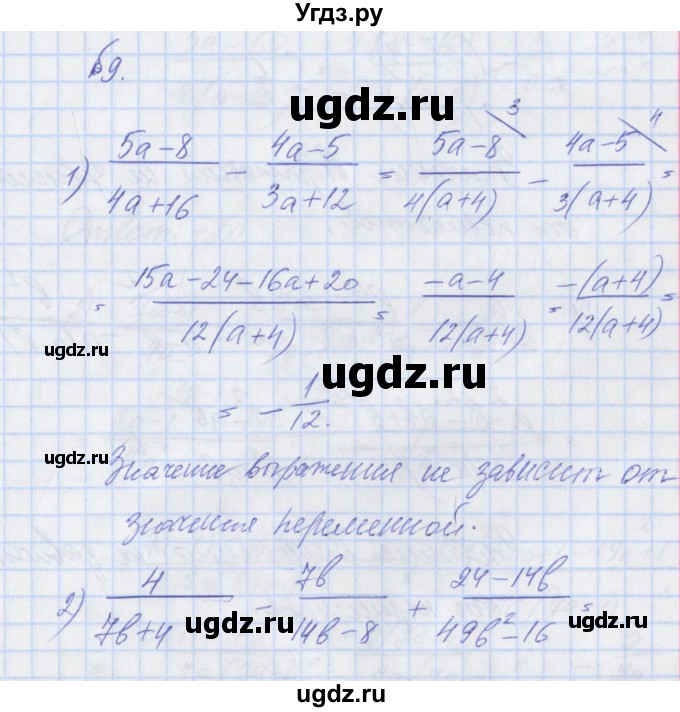 Угдз.ру
69.
ugdz.ru
1) (5a-8)/(4a+16) - (4a-5)/(3a+12) = (5a-8)/(4(a+4)) \3 - (4a-5)/(3(a+4)) \4 =
= (15a-24-16a+20)/(12(a+4)) = (-a-4)/(12(a+4)) = (-(a+4))/(12(a+4)) =
ugdz.ru ugdz.ru
= - 1/12.
ugdz.ru
Значение выражения не зависит от
значения переменной.
2) 4/(7b+4) - 7b/(14b-8) + (24-14b)/(49b²-16) =
ugdz.ru ugdz.ru
ugdz.ru